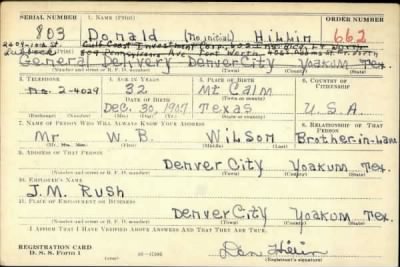 SERIAL NUMBER 1. NAME (Print) ORDER NUMBER
803 Donald (no initial) Hillin 662
2609-10th St.
Lubbock
General Delivery Denver City Yoakum Tex.
(Number and street or R. F. D. number) (Town) (County) (State)
3. TELEPHONE 4. AGE IN YEARS 5. PLACE OF BIRTH 6. COUNTRY OF CITIZENSHIP
32 Mt Calm
no. 2-4029 DATE OF BIRTH
Dec. 30, 1907 Texas U.S.A.
(Exchange) (Number) (Mo.) (Day) (Yr.) (State or country)
7. NAME OF PERSON WHO WILL ALWAYS KNOW YOUR ADDRESS 8. RELATIONSHIP OF THAT PERSON
Mr. W. B. Wilson Brother-in-Law
(Mr., Mrs., Miss) (First) (Middle) (Last)
9. ADDRESS OF THAT PERSON
Denver City Yoakum Tex.
(Number and street or R. F. D. number) (Town) (County) (State)
10. EMPLOYER'S NAME
J.M. Rush
11. PLACE OF EMPLOYMENT OR BUSINESS
Denver City Yoakum Tex.
(Number and street or R. F. D. number) (Town) (County) (State)
I AFFIRM THAT I HAVE VERIFIED ABOVE ANSWERS AND THAT THEY ARE TRUE.
REGISTRATION CARD
D. S. S. Form 1 Don Hillin
(Registrant's signature)